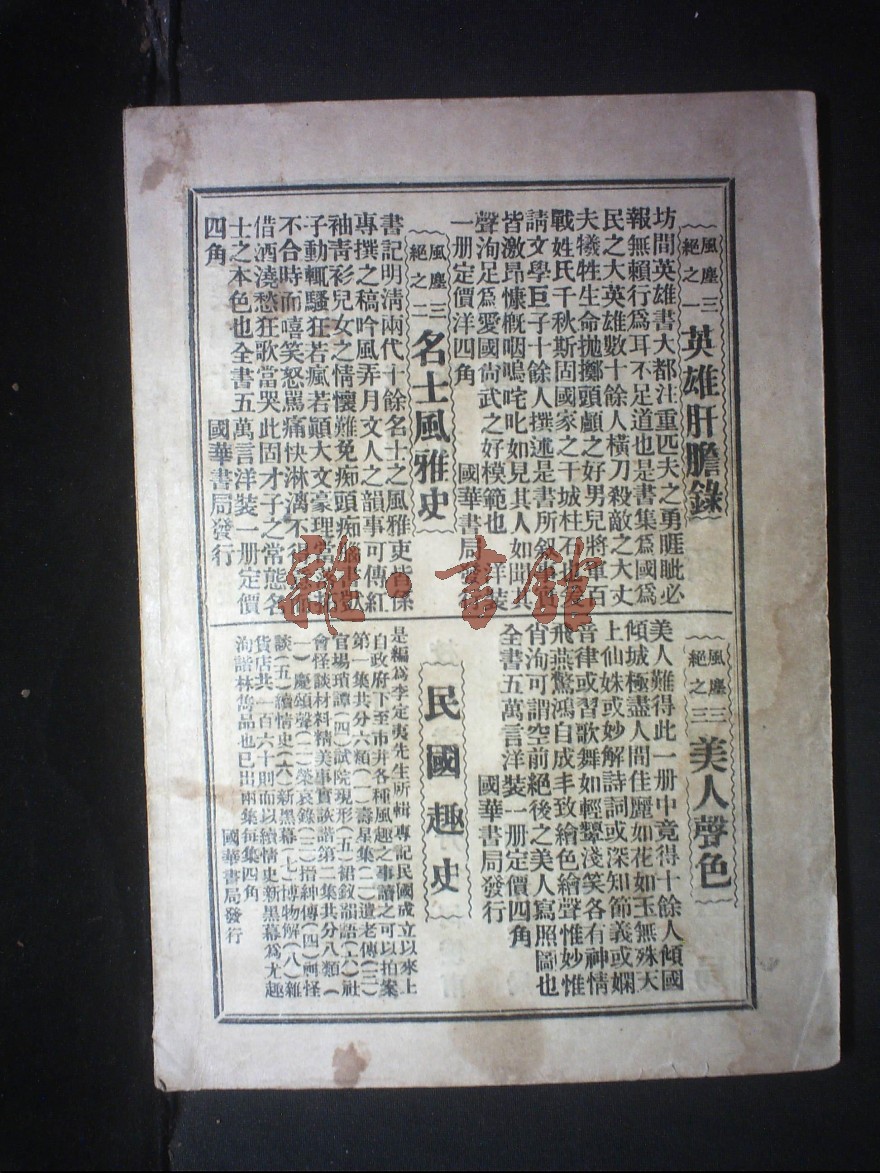 風塵三絕之一 英雄肝膽錄
坊間英雄書大都注重匹夫之勇睚眦必
報無賴行爲耳不足道也是書集爲國爲
民之大英雄數十餘人橫刀殺敵之大丈
夫犧牲生命拋擲頭顱之好男兒將軍百
戰姓氏千秋斯固國家之干城柱石也
請文學巨子十餘人撰述是書所叙
皆激昂慷慨咽嗚咤叱如見其人如聞其
聲洵足爲愛國尙武之好模範也 洋裝
一册定價洋四角 國華書局發行
風塵三絕之二 名士風雅史
書記明淸兩代十餘名士之風雅史皆係
專撰之稿吟風弄月文人之韻事可傳紅
袖靑衫兒女之情懷難免痴頭痴腦書獃
子動輒騷狂若瘋若顚大文豪理當
不合時而嘻笑怒罵痛快淋漓不得志而
借酒澆愁狂歌當哭此固才子之常態名
士之本色也全書五萬言洋裝一册定價
四角 國華書局發行
風塵三絕之三 美人聲色
美人難得此一册中竟得十餘人傾國
傾城極盡人間佳麗如花如玉無殊天
上仙姝或妙解詩詞或深知節義或嫻
音律或習歌舞如輕顰淺笑各有神情
飛燕驚鴻自成丰致繪色繪聲惟妙惟
肖洵可謂空前絕後之美人寫照圖也
全書五萬言洋裝一册定價四角
國華書局發行
民國趣史
是編爲李定夷先生所輯專記民國成立以來上
自政府下至市井各種風趣之事讀之可以拍案
第一集共分六類(一)壽星集(二)遺老傳(三)
官場瑣譚(四)試院現形(五)裙釵韻語(六)社
會怪談材料精美事實詼諧第二集共分八類(
一)慶頌聲(二)榮哀錄(三)搢紳傳(四)神怪
談(五)續情史(六)新黑幕(七)博物解(八)雜
貨店共一百六十則而以續情史新黑幕爲尤趣
洵諧林雋品也已出兩集每集四角
國華書局發行
雜·書館